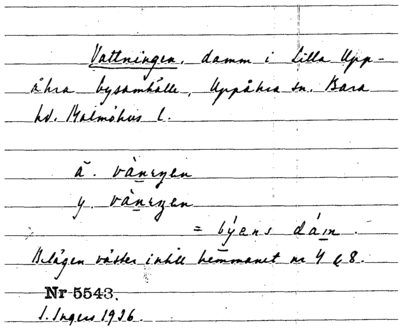 Vattningen, damm i Lilla Upp-
åkra bysamhälle, Uppåkra sn. Bara
hd. Malmöhus l.
ä. vànıŋen
y. vànıŋen
= býens dám.
Belägen väster intill hemmanet nr 4 & 8.
Nr 5543.
I. Ingers 1936.